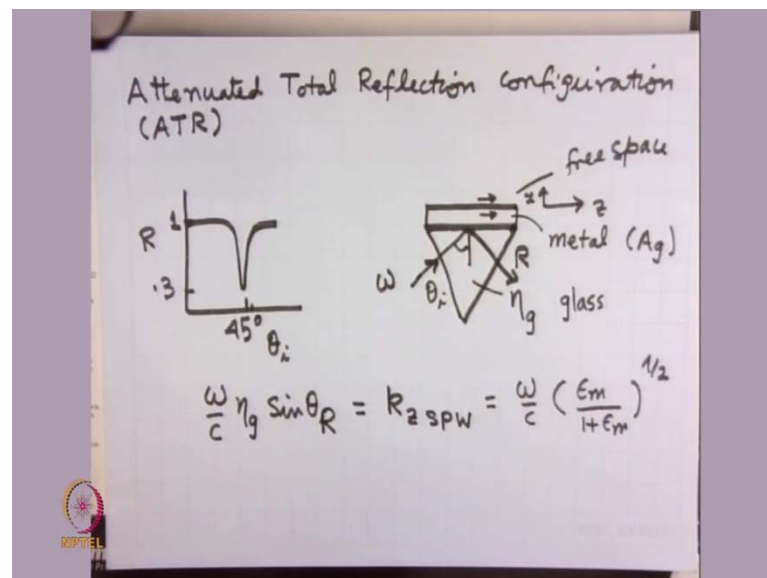 Attenuated Total Reflection Configuiration
(ATR)
free space
x
z
metal (Ag)
R
1
.3
45°
θi
ω
θi
R
ηg glass
ω/c ηg sinθR = kz SPW = ω/c (εm/1+εm)^1/2
NPTEL